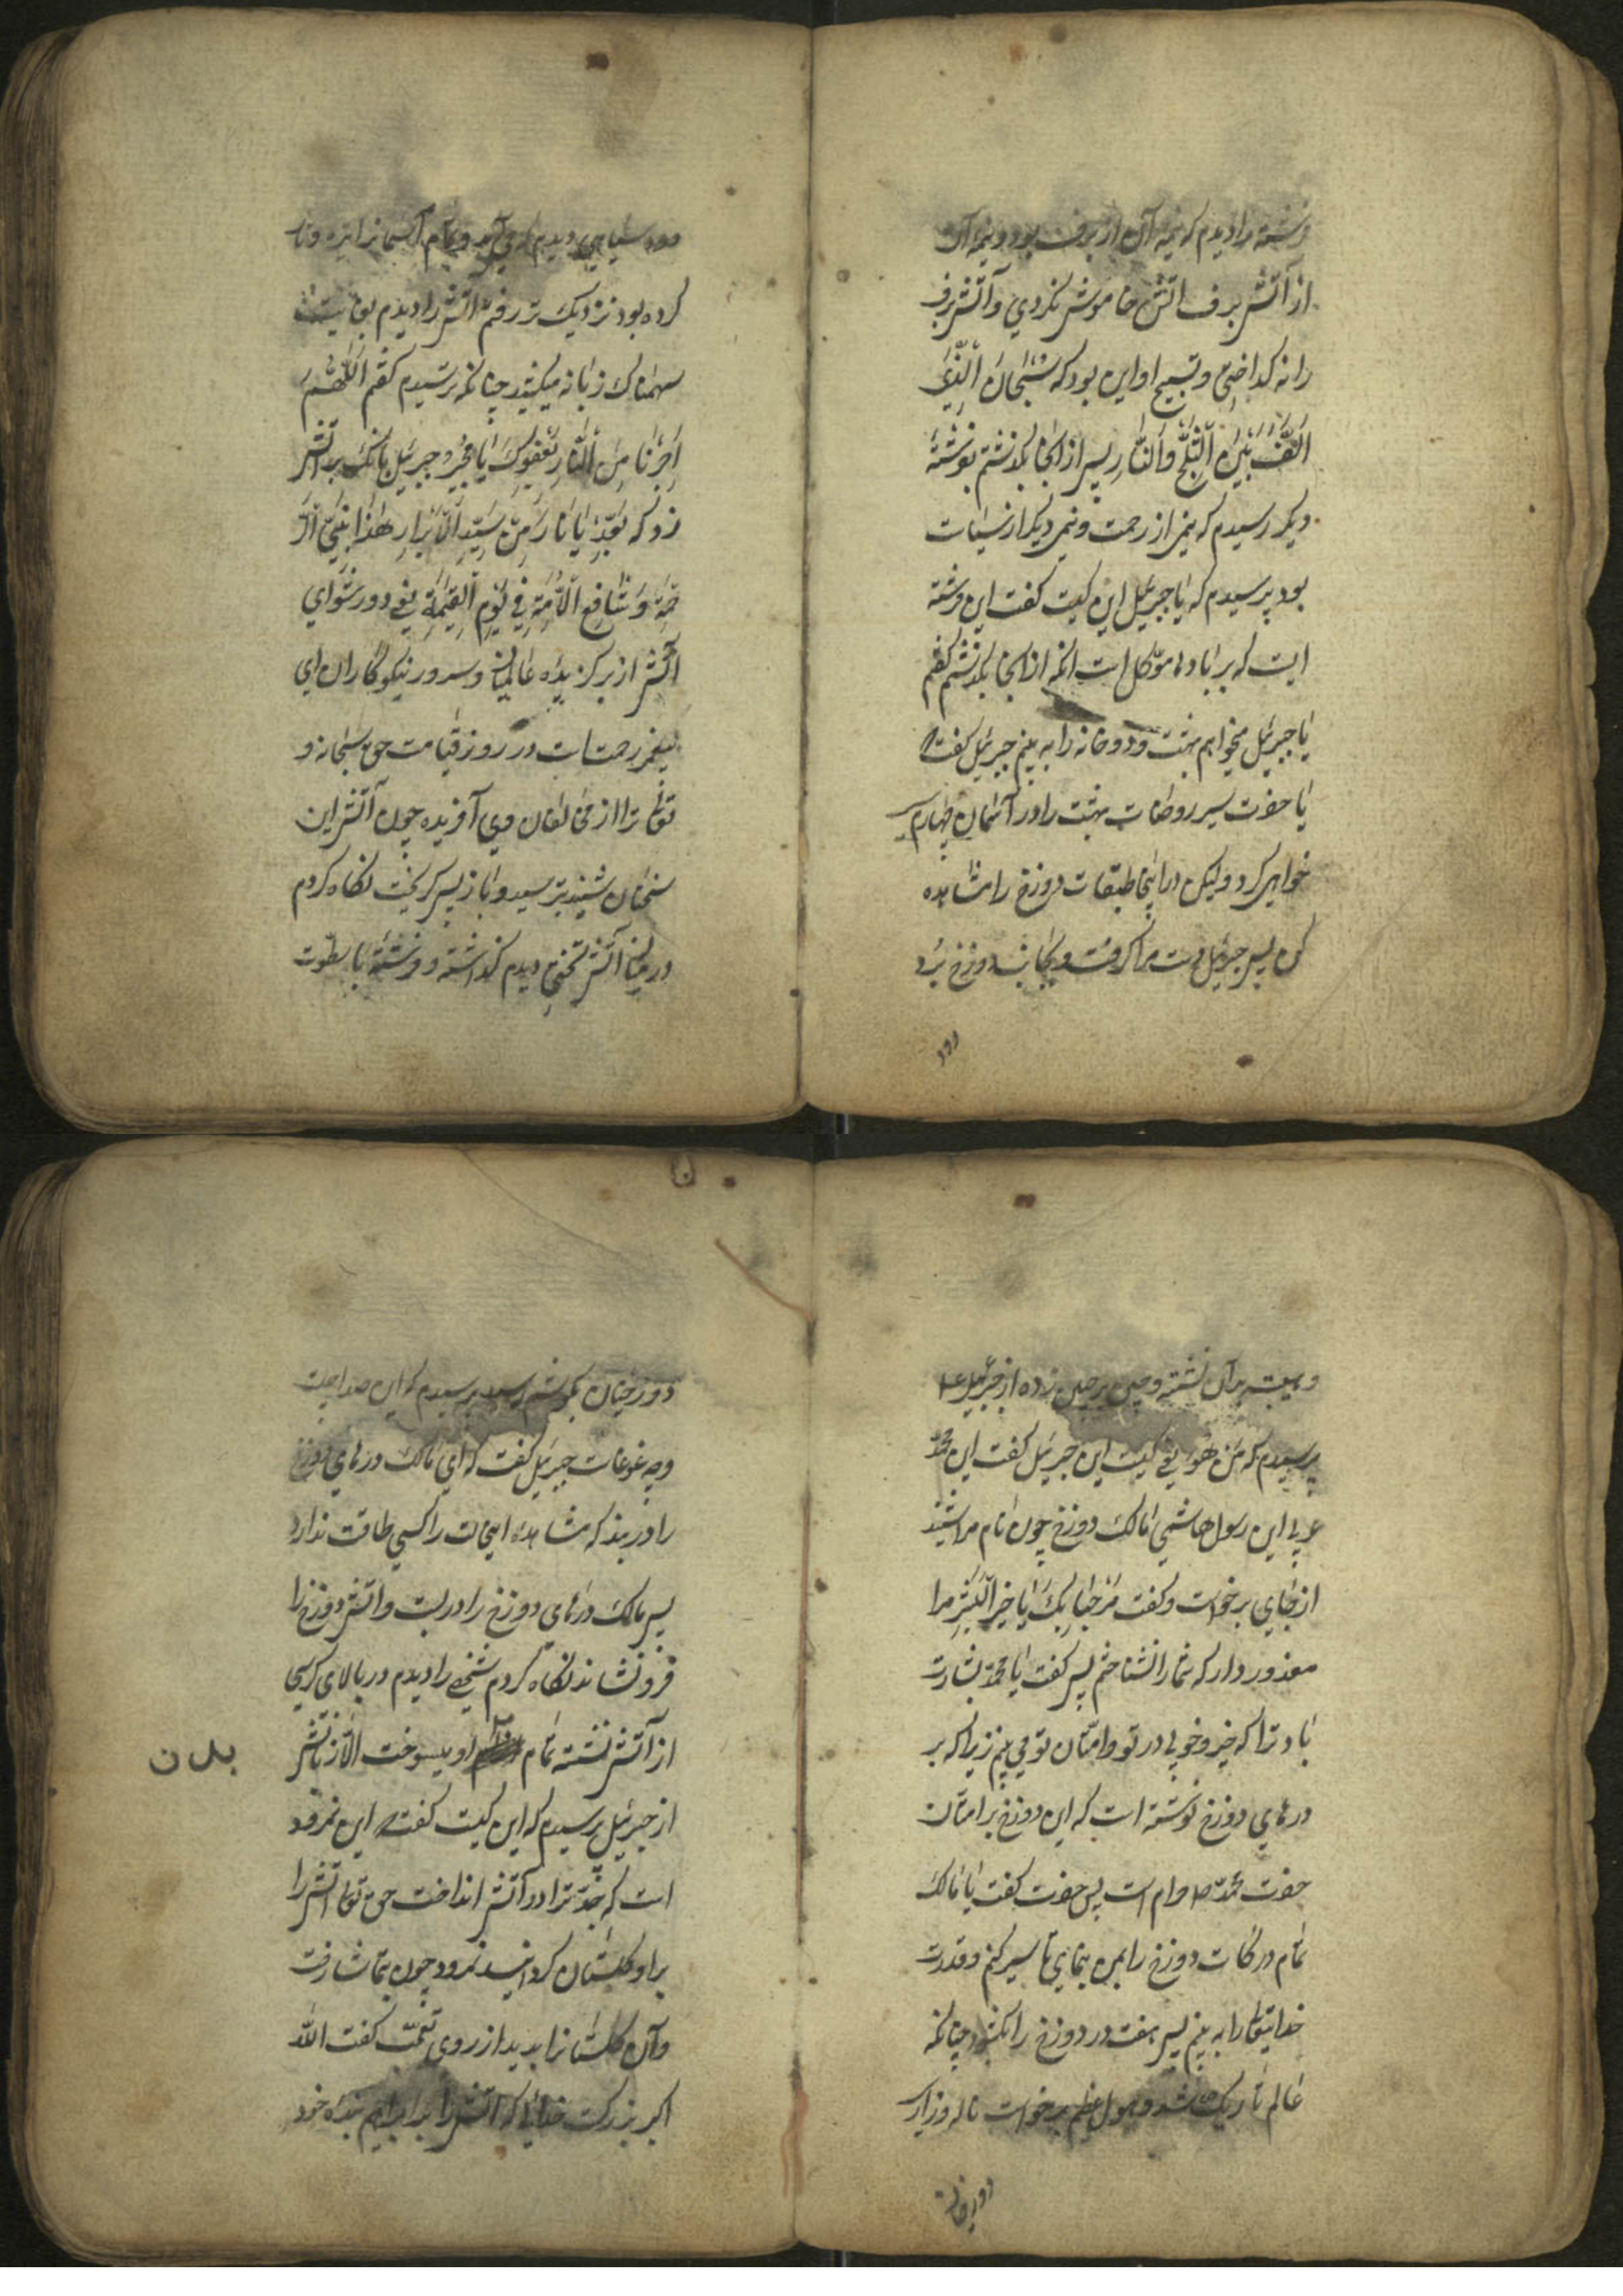 فرشته را دیدم که نیمه آن از برف بود و نیمه آن
از آتش برف اتش خاموش نکردی و آتش برف
را نه کداختی و تسبیح او این بود که سُبْحَانَ الَّذِی
اَلَّفَ بَیْنَ الثَّلْجِ وَالنَّارِ پس از انجا بگذشتم بفرشتهٔ
دیگر رسیدم که نیمی از رحمت ونیمی دیگر از
بود پرسیدم که یا جبرئیل این کیست گفت این فرشته
ایست که بر بادها موکل است انکه از انجا بگذشتم گفتم
یا جبرئیل میخواهم بهشت ودوخانه را به بینم جبرئیل گفت
یا حضرت سیر روضات بهشت را در آسمان چهارم
خواهی کرد ولیکن در اینجا طبقات دوزخ را مشاهده
کن پس جبرئیل دست مرا گرفت وبجانب دوزخ برد
دود
دود سیاهی دیدم که می آید و تمام آسمانرا تیره وتار
کرده بود نزدیک تر رفتم اتش را دیدم بغایت
سهمناک زبانه میکشید چنانکه ترسیدم گفتم اَللّٰهُمَّ
اَجِرْنَا مِنَ النَّارِ بِعَفْوِکَ یَا مُجِیْرُ وجبرئیل بانک بر آتش
زد که یَا نَارُ مِنْ سَیِّدِ الْاَبْرَارِ هٰذَا نَبِیُّ الرَّ
حْمَةِ وَشَافِعُ الْاُمَّةِ فِی یَوْمِ الْقِیٰمَةِ یعنی دور شو ای
آتش از برگزیدهٔ عالمیان وسرور نیکوکاران ای
پیغمبر رحمتست در روز قیامت حق سبحانه و
تعالی ترا از مخالفان وی آفریده چون آتش این
سخنان شنید بترسید وباز پس گریخت نکاه کردم
در میان آتش تختی دیدم گذاشته وفرشتهٔ با سطوت
وهیبت بران نشسته وچین بر جبین زده از جبرئیل ع
پرسیدم که مَنْ هُوَ یعنی کیست این جبرئیل گفت این محمد
عربی این رسول هاشمی مالک دوزخ چون نام مرا شنید
از جای برخواست وگفت مَرْحَبًا بِکَ یَا خَیْرَ الْبَشَرِ مرا
معذور دار که شما را نشناختم پس گفت یا محمد بشارت
باد ترا که خیر وخوبی در تو وامتان تو می بینم زیرا که بر
درهای دوزخ نوشته است که این دوزخ بر امتان
حضرت محمد ص حرام است پس حضرت گفت یا مالک
تمام درکات دوزخ را بمن بنمای تا سیر کنم وقدرت
خدایتعالی را به بینم پس هفت در دوزخ را بکشود چنانکه
عالم تاریک شد وهول عظیم برخواست ناله وزاری
دوزخیان
دوزخیان بگوشم رسید پرسیدم که این صدا چیست
وچه غوغاست جبرئیل گفت که ای مالک درهای دوزخ
را در بند که مشاهدهٔ اینحالت را کسی طاقت ندارد
پس مالک درهای دوزخ را در بست واتش دوزخ را
فرونشاند نکاه کردم شخصی را دیدم در بالای کرسی
از آتش نشسته تمام او میسوخت الا زبانش
بدن
از جبرئیل پرسیدم که این کیست گفت این نمرود
است که جد ترا در آتش انداخت حق تعالی اتش را
براو گلستان گردانید نمرود چون بتماشا رفت
وآن گلستانرا بدید از روی تعجب گفت الله
اکبر بزرکست خدای که آتش را بر ابراهیم بنده خود